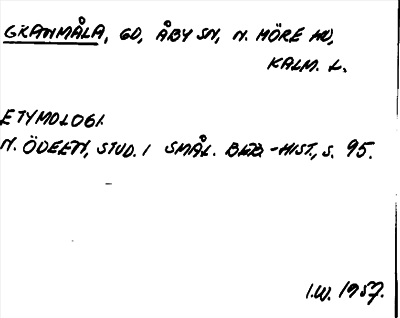 GRANMÅLA, GD, ÅBY SN, N. MÖRE HD,
KALM. L.
ETYMOLOGI.
N. ÖDEEN, STUD. I SMÅL. BEB.-HIST., S. 95.
I.W. 1957.